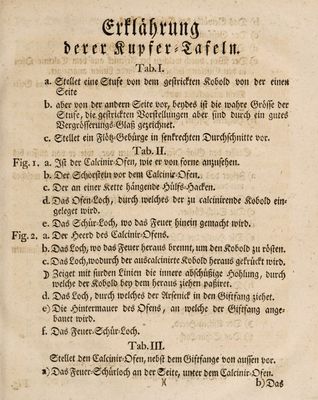 Erklährung
derer Kupfer-Tafeln.
Tab. I.
a. Stellet eine Stufe von dem gestrickten Kobold von der einen
Seite
b. aber von der andern Seite vor, beydes ist die wahre Grösse der
Stufe, die gestrickten Vorstellungen aber sind durch ein gutes
Vergrösserungs-Glaß gezeichnet.
c. Stellet ein Flötz-Gebürge in senkrechten Durchschnitte vor.
Tab. II.
Fig. 1. a. Ist der Calcinir-Ofen, wie er von forne anzusehen.
b. Der Schorstein vor dem Calcinir-Ofen.
c. Der an einer Kette hängende Hülfs-Hacken.
d. Das Ofen-Loch, durch welches der zu calcinirende Kobold ein-
geleget wird.
e. Das Schür-Loch, wo das Feuer hinein gemacht wird.
Fig. 2. a. Der Heerd des Calcinir-Ofens.
b. Das Loch, wo das Feuer heraus brennt, um den Kobold zu rösten.
c. Das Loch, wodurch der auscalcinirte Kobold heraus gekrückt wird.
) Zeiget mit furden Linien die innere abschüßige Höhlung, durch
welche der Kobold bey dem heraus ziehen paßiret.
d. Das Loch, durch welches der Arsenick in den Giftfang ziehet.
e. Die Hintermauer des Ofens, an welche der Giftfang ange-
bauet wird.
f. Das Feuer-Schür-Loch.
Tab. III.
Stellet den Calcinir-Ofen, nebst dem Giftfange von aussen vor.
a) Das Feuer-Schürloch an der Seite, unter dem Calcinir-Ofen.
)( b) Das